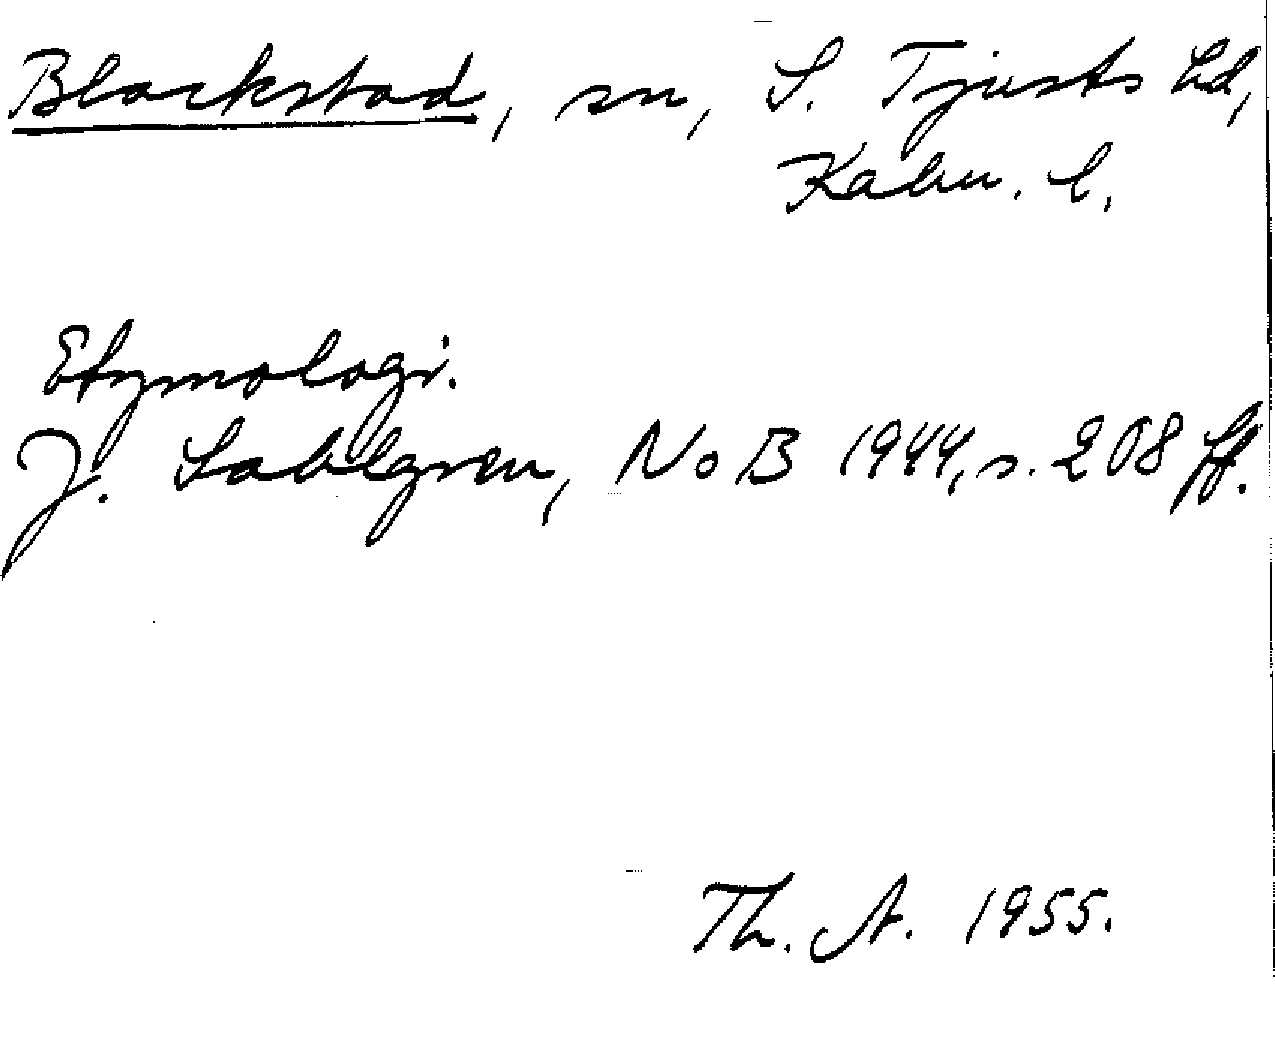 Blackstad, sn, S. Tjusts hd,
Kalm. l.
Etymologi.
J. Sahlgren, NoB 1944, s. 208 ff.
Th. A. 1955.